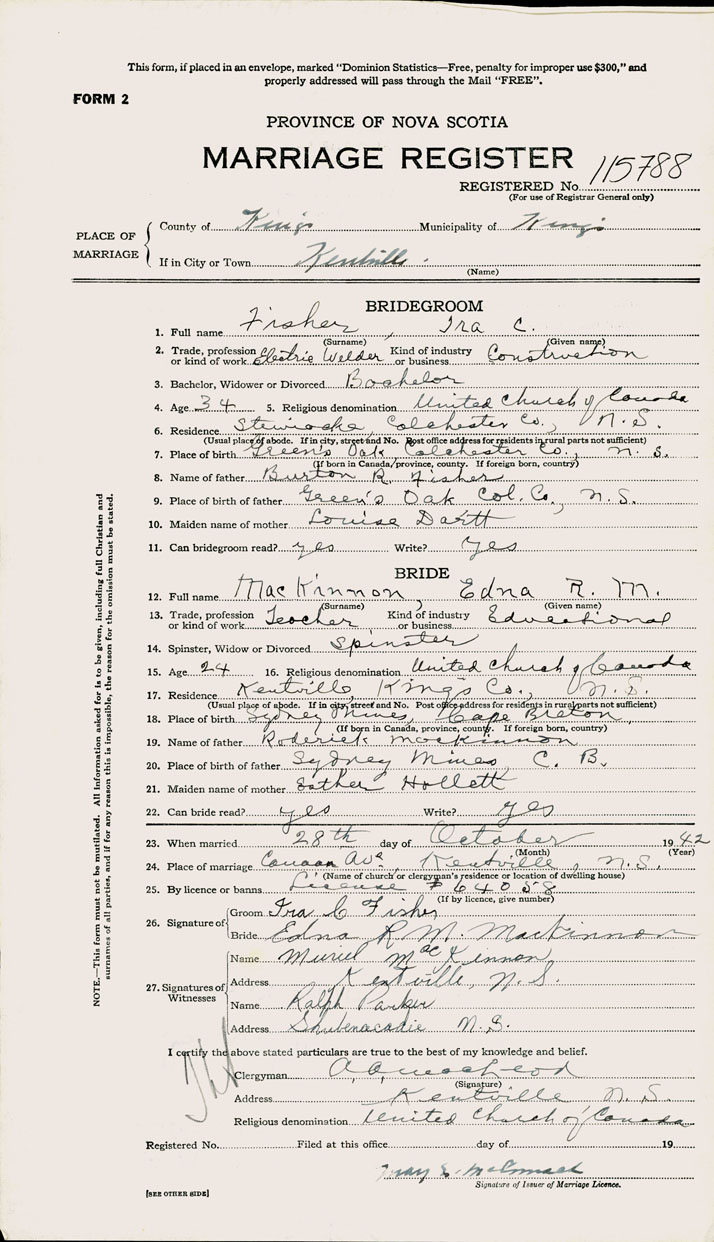 This form, if placed in an envelope, marked "Dominion Statistics—Free, penalty for improper use $300," and
properly addressed will pass through the Mail "FREE".
FORM 2
PROVINCE OF NOVA SCOTIA
MARRIAGE REGISTER
REGISTERED No. 115788
(For use of Registrar General only)
PLACE OF MARRIAGE
County of Kings Municipality of Kings
If in City or Town Kentville.
(Name)
BRIDEGROOM
1. Full name Fisher, Ira C.
(Surname) (Given name)
2. Trade, profession or kind of work Electric Welder Kind of industry or business Construction
3. Bachelor, Widower or Divorced Bachelor
4. Age 34 5. Religious denomination United Church of Canada
6. Residence Stewiacke, Colchester Co., N.S.
(Usual place of abode. If in city, street and No. Post office address for residents in rural parts not sufficient)
7. Place of birth Green's Oak Colchester Co., N.S.
(If born in Canada, province, county. If foreign born, country)
8. Name of father Burton R. Fisher
9. Place of birth of father Green's Oak Col. Co., N.S.
10. Maiden name of mother Louise Dartt
11. Can bridegroom read? yes Write? yes
BRIDE
12. Full name MacKinnon, Edna R. M.
(Surname) (Given name)
13. Trade, profession or kind of work Teacher Kind of industry or business Educational
14. Spinster, Widow or Divorced Spinster
15. Age 24 16. Religious denomination United Church of Canada
17. Residence Kentville, Kings Co., N.S.
(Usual place of abode. If in city, street and No. Post office address for residents in rural parts not sufficient)
18. Place of birth Sydney Mines, Cape Breton
(If born in Canada, province, county. If foreign born, country)
19. Name of father Roderick MacKinnon
20. Place of birth of father Sydney Mines, C. B.
21. Maiden name of mother Esther Hollett
22. Can bride read? yes Write? yes
23. When married 28th day of October 1942
(Month) (Year)
24. Place of marriage Canaan Ave, Kentville, N.S.
(Name of church or clergyman's residence or location of dwelling house)
25. By licence or banns License # 64058
(If by licence, give number)
26. Signature of
Groom Ira C Fisher
Bride Edna R. M. MacKinnon
27. Signatures of Witnesses
Name Muriel MacKinnon
Address Kentville, N.S.
Name Ralph Parker
Address Shubenacadie N.S.
I certify the above stated particulars are true to the best of my knowledge and belief.
Clergyman A. A. MacLeod
(Signature)
Address Kentville N.S.
Religious denomination United Church of Canada
Registered No. Filed at this office day of 19
Signature of Issuer of Marriage Licence.
[SEE OTHER SIDE]
NOTE.—This form must not be mutilated. All Information asked for is to be given, including full Christian and
surnames of all parties, and if for any reason this is impossible, the reason for the omission must be stated.